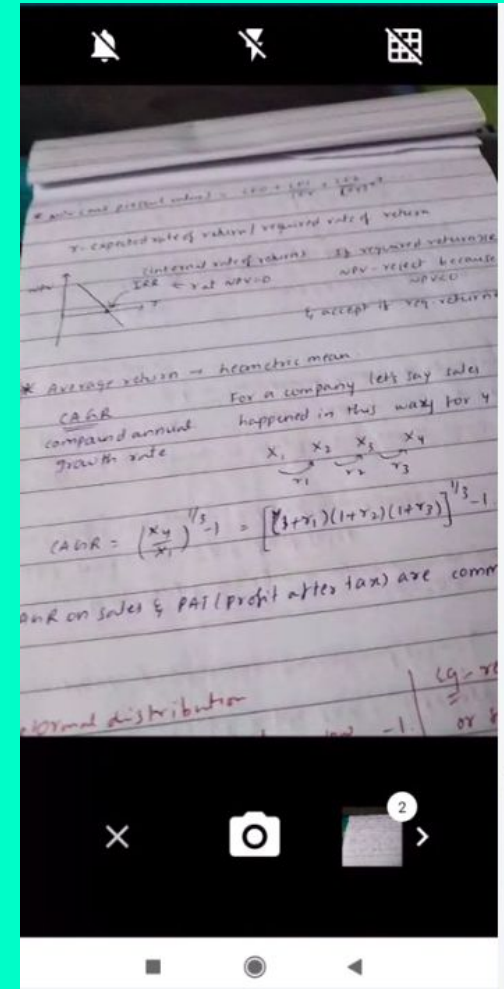 r - expected rate of return / required rate of return
(internal rate of return) If required return
IRR ← r at NPV=0 NPV - reject because
NPV<0
r & accept if req. return
* Average return → heometric mean
CAGR For a company let's say sales
compaund annual happened in this way for 4
growth rate
X₁ X₂ X₃ X₄
r₁ r₂ r₃
CAGR = (X₄/X₁)^1/3 -1 = [(1+r₁)(1+r₂)(1+r₃)]^1/3 -1
on sales & PAT (profit after tax) are comm
distribution
-1.
or
2